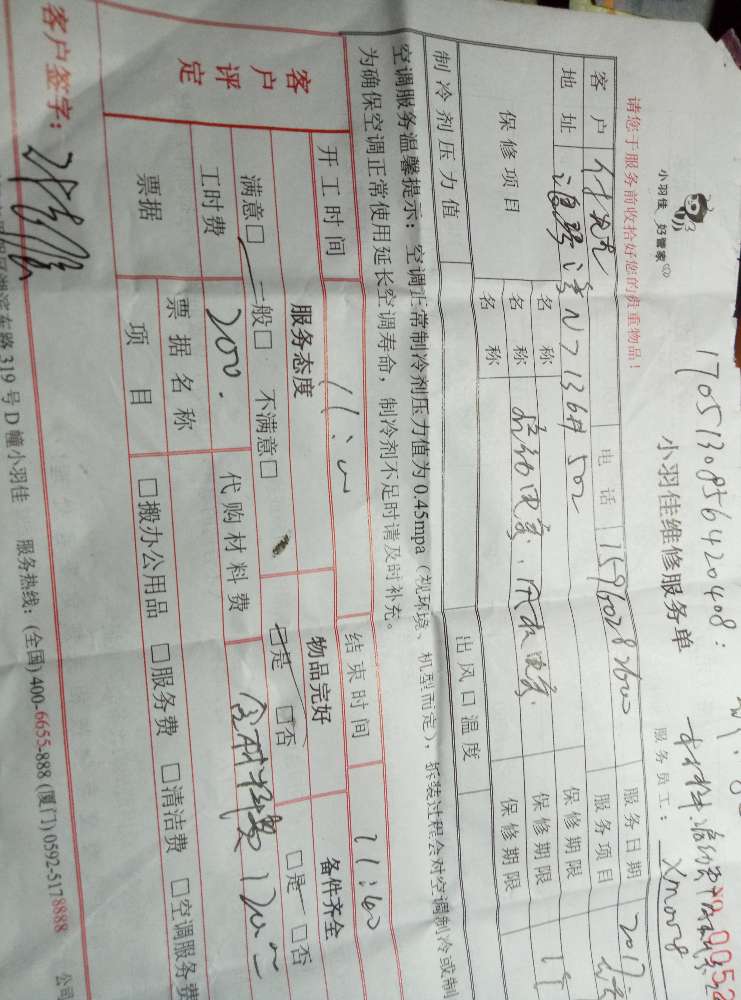 小羽佳 好管家
1705130856420408:
小羽佳维修服务单
服务员工: Xm008
请您于服务前收拾好您的贵重物品!
客户
电话 15960282600
服务日期 2017
地址 N7 136# 502
服务项目
保修项目
名称
保修期限
名称 启动电容. 风机电容.
保修期限 1年
名称
保修期限
制冷剂压力值
出风口温度
空调服务温馨提示: 空调正常制冷剂压力值为0.45mpa (视环境、机型而定), 拆装过程会对空调制冷或制
为确保空调正常使用延长空调寿命, 制冷剂不足时请及时补充。
开工时间 11:00
结束时间 11:40
客户评定
服务态度
物品完好
备件齐全
满意□ 一般□ 不满意□
□是 □否
□是 □否
工时费 200.
代购材料费 含材料费 1200
票据
票据名称
项目
□搬办公用品 □服务费 □清洁费 □空调服务费
客户签字:
东路319号D幢小羽佳 服务热线: (全国) 400-6655-888 (厦门) 0592-5178888 公司